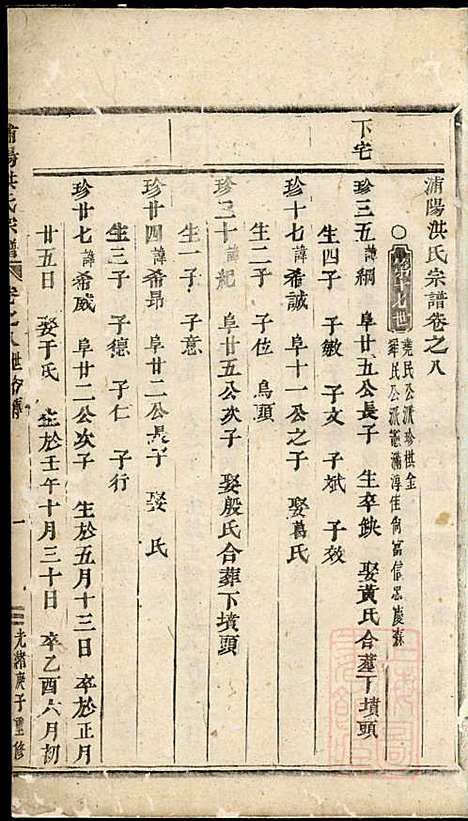 浦陽洪氏宗譜卷之八
第十七世
堯民公派珍棋金
舜民公派寵滿淳佳尙富信忠慶蘇
下宅
珍三五諱綱 阜廿五公長子 生卒缺 娶黃氏合葬下墳頭
生四子 子敏 子文 子斌 子效
珍十七諱希誠 阜十一公之子 娶葛氏
生二子 子位 烏頭
珍三十諱紀 阜廿五公次子 娶殷氏合葬下墳頭
生一子 子意
珍廿四諱希昂 阜廿二公長子 娶 氏
生三子 子德 子仁 子行
珍廿七諱希威 阜廿二公次子 生於五月十三日 卒於正月
廿五日 娶于氏 生於壬午十月三十日 卒乙酉六月初
浦陽洪氏宗譜 卷之八世系傳 一 光緒庚子重修